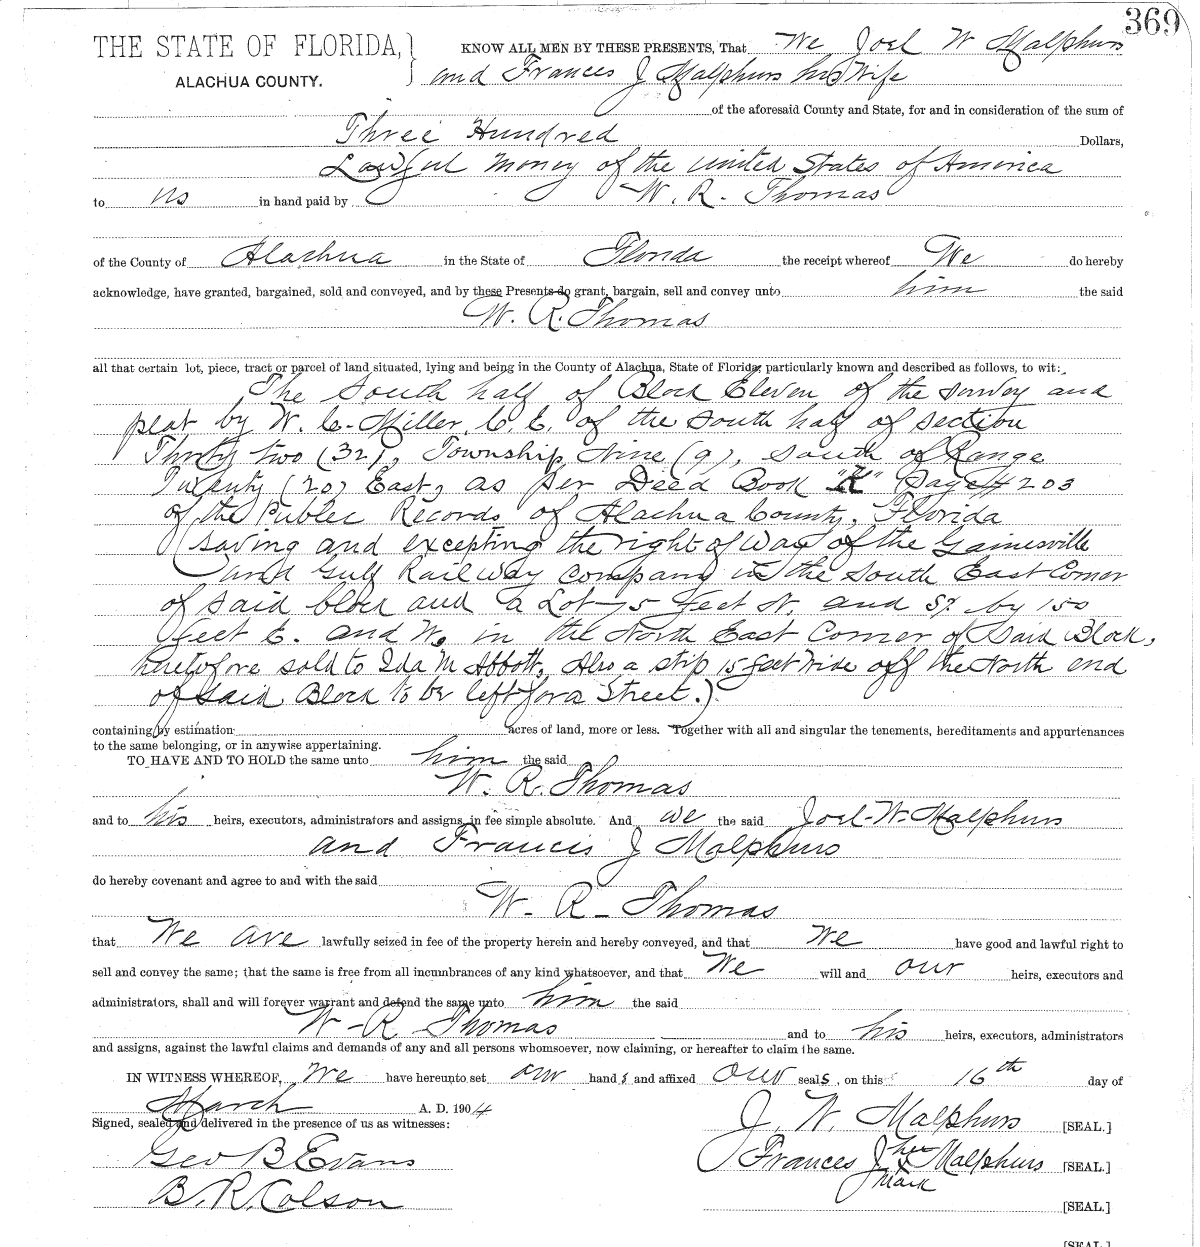 369
THE STATE OF FLORIDA,
ALACHUA COUNTY.
KNOW ALL MEN BY THESE PRESENTS, That We Joel W Malphurs
and Frances J Malphurs his Wife
of the aforesaid County and State, for and in consideration of the sum of
Three Hundred Dollars,
Lawful Money of the United States of America
to us in hand paid by W. R. Thomas
of the County of Alachua in the State of Florida the receipt whereof We do hereby
acknowledge, have granted, bargained, sold and conveyed, and by these Presents do grant, bargain, sell and convey unto him the said
W. R. Thomas
all that certain lot, piece, tract or parcel of land situated, lying and being in the County of Alachua, State of Florida, particularly known and described as follows, to wit:
The South half of Block Eleven of the survey and
plat by W. C. Miller, C. E. of the South half of section
Thirty two (32), Township Nine (9), South of Range
Twenty (20) East, as per Deed Book "K" Page # 203
of the Public Records of Alachua County, Florida
(saving and excepting the right of Way of the Gainesville
and Gulf Railway Company in the South East Corner
of said block and a Lot 75 feet N. and S. by 150
feet E. and W. in the North East Corner of Said Block,
heretofore sold to Ida M Abbott, Also a stip 15 feet Wide off the North end
of said Block to be left for a Street.)
containing by estimation acres of land, more or less. Together with all and singular the tenements, hereditaments and appurtenances
to the same belonging, or in anywise appertaining.
TO HAVE AND TO HOLD the same unto him the said
W. R. Thomas
and to his heirs, executors, administrators and assigns, in fee simple absolute. And we the said Joel W. Malphurs
and Francis J Malphurs
do hereby covenant and agree to and with the said
W. R. Thomas
that We are lawfully seized in fee of the property herein and hereby conveyed, and that We have good and lawful right to
sell and convey the same; that the same is free from all incumbrances of any kind whatsoever, and that We will and our heirs, executors and
administrators, shall and will forever warrant and defend the same unto him the said
W. R. Thomas and to his heirs, executors, administrators
and assigns, against the lawful claims and demands of any and all persons whomsoever, now claiming, or hereafter to claim the same.
IN WITNESS WHEREOF, We have hereunto set our hands and affixed our seals, on this 16th day of
March A. D. 1904
Signed, sealed and delivered in the presence of us as witnesses:
J. W. Malphurs [SEAL.]
Geo B Evans
Frances J her x mark Malphurs [SEAL.]
B. R. Colson
[SEAL.]
[SEAL.]